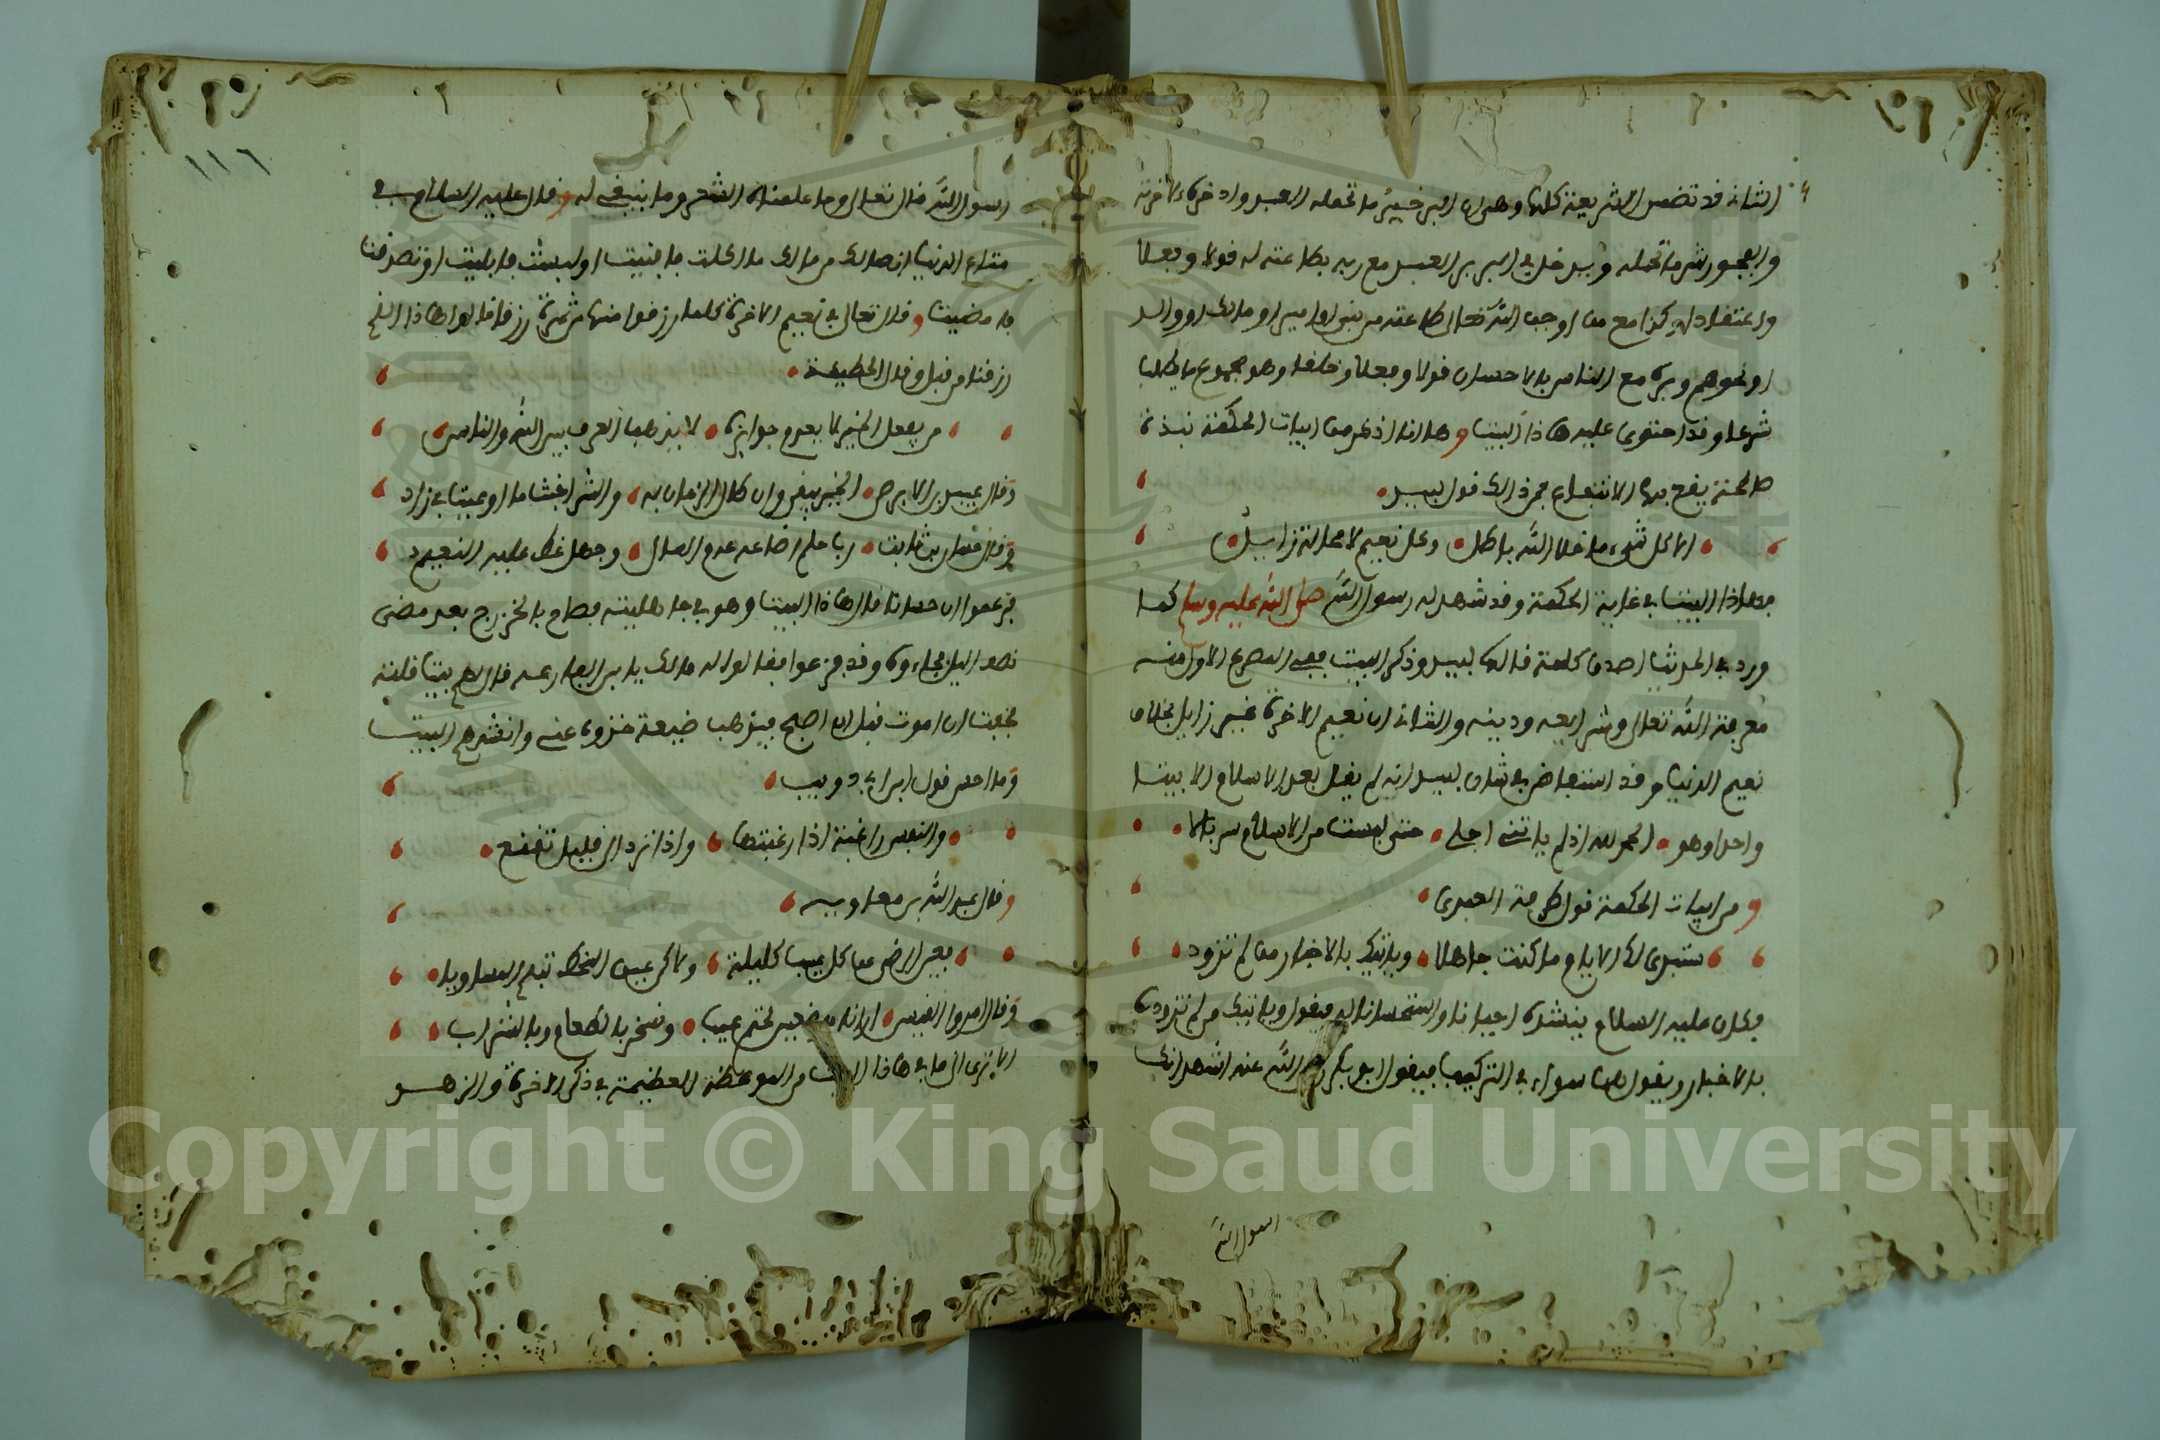 الثاني قد تضمن الشريعة كلها وهي ان البر خير ما تحمله العبد وادخره لاخرته
والفجور شر ما تحمله ويدخل في البر بر العبد مع ربه بطاعته له قولا وفعلا
واعتقادا وكذا مع من اوجب الله تعالى طاعته من نبي او امير او مالك او والد
او نحوهم وبره مع الناس بالاحسان قولا وفعلا وخلقا وهو مجموع ما يطلب
شرعا وقد احتوى عليه هاذا البيت وهاانا اذكر من ابيات الحكمة نبذة
صالحة يقع بها الانتفاع فمن ذالك قول لبيد
الا كل شيء ما خلا الله باطل وكل نعيم لا محالة زايل
فهاذا البيت في غاية الحكمة وقد شهد له رسول الله صلى الله عليه وسلم كما
ورد في الحديث اصدق كلمة قالها لبيد وذكر البيت ففي المصرع الاول منه
معرفة الله تعالى وشرايعه ودينه والثاني ان نعيم الاخرة غير زايل بخلاف
نعيم الدنيا وقد استفاض في شان لبيد انه لم يقل بعد الاسلام الا بيتا
واحدا وهو الحمد لله اذ لم ياتني اجلي حتى لبست من الاسلام سربالا
ومن ابيات الحكمة قول طرفة العبدي
ستبدي لك الايام ما كنت جاهلا وياتيك بالاخبار من لم تزود
فكان عليه السلام ينشده احيانا واستحسانا له فيقول وياتيك من لم تزوده
بالاخبار ويقول هما سواء في التركيب فيقول ابو بكر رضي الله عنه اشهد انك
رسول الله
١١٦
رسول الله قال تعالى وما علمناه الشعر وما ينبغي له وقال عليه السلام في
متاع الدنيا انما لك من مالك ما اكلت فافنيت او لبست فابليت او تصدقت
فامضيت وقال تعالى في نعيم الاخرة كلما رزقوا منها من ثمرة رزقا قالوا هاذا الذي
رزقنا من قبل وقال الحطيئة
من يفعل الخير لا يعدم جوازيه لا يذهب العرف بين الله والناس
وقال عبيد بن الابرص الخير يبقى وان طال الزمان به والشر اخبث ما اوعيت في زاد
وقال حسان بن ثابت رب حلم اضاعه عدم المال وجهل غطى عليه النعيم
فزعموا ان حسانا قال هاذا البيت وهو في جاهليته فصاح بالخزرج بعد مضي
نصف اليل فجاءوه وقد فزعوا فقالوا له مالك يا بن الفارعة قال لهم بيتا قلته
فخفت ان اموت قبل ان اصبح فيذهب ضيعة خذوه عني وانشدهم البيت
وما احسن قول ابي ذويب
والنفس راغبة اذا رغبتها واذا ترد الى قليل تقنع
وقال عبد الله بن معاوية
فعين الرضى عن كل عيب كليلة ولاكن عين السخط تبدي المساويا
وقال امرؤ القيس ارانا موضعين لحتم غيب ونسحر بالطعام وبالشراب
الا ترى الى ما في هاذا البيت من الموعظة العظيمة في ذكر الاخرة والزهد
Copyright © King Saud University